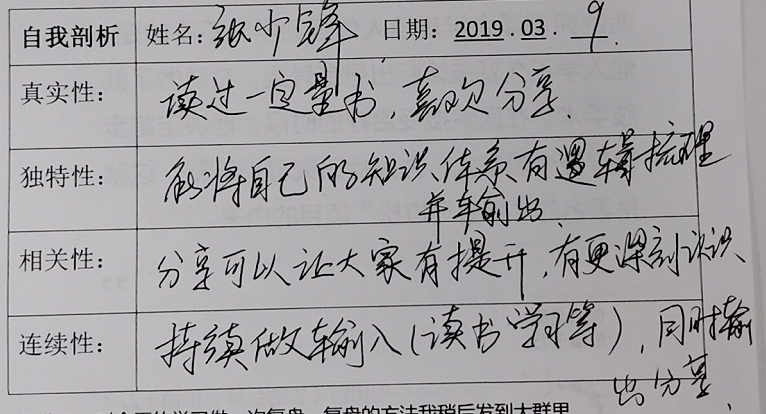 自我剖析 姓名：张少锋 日期：2019.03.9
真实性： 读过一定量书，喜欢分享.
独特性： 能将自己的知识体系有逻辑梳理
并车输出.
相关性： 分享可以让大家有提升，有更深刻认识
连续性： 持续做输入（读书学习等），同时输
出分享
次复盘，复盘的方法我稍后发到大群里